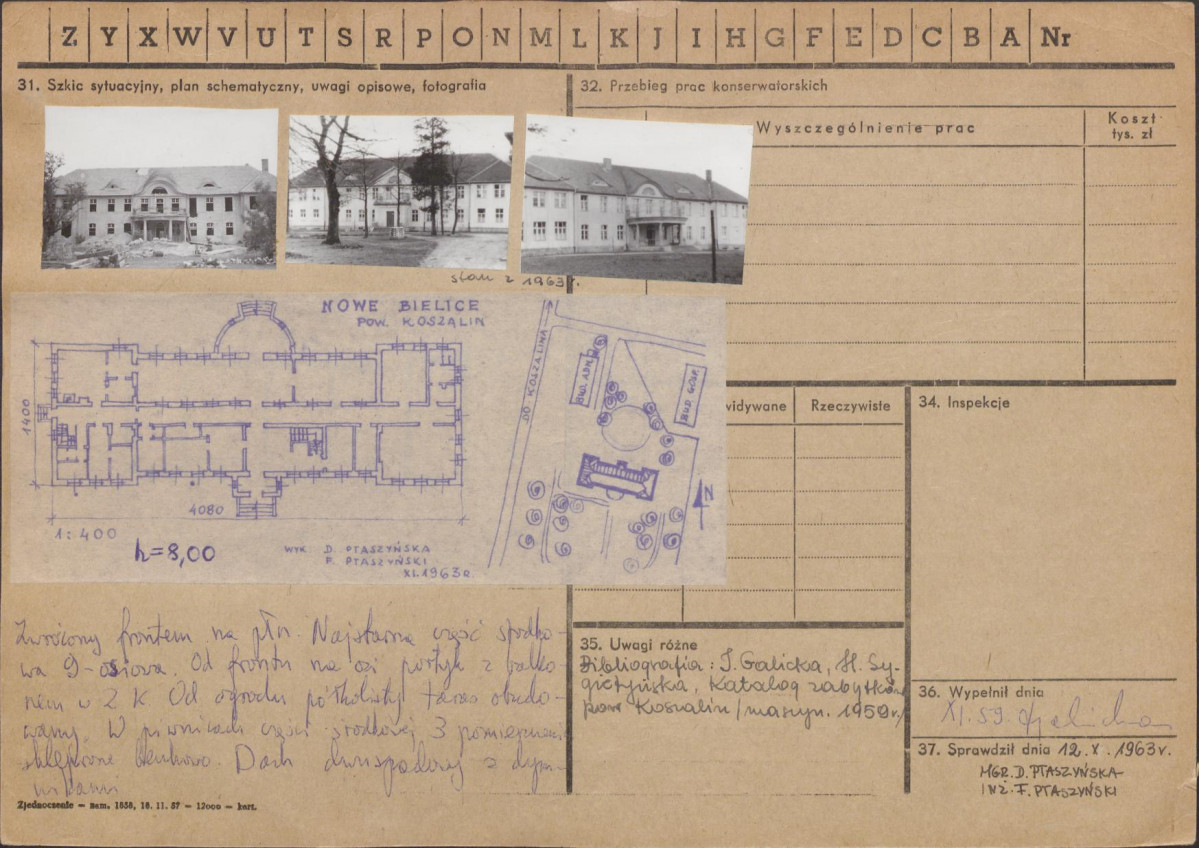 Z Y X W V U T S R P O N M L K J I H G F E D C B A Nr
31. Szkic sytuacyjny, plan schematyczny, uwagi opisowe, fotografia
stan z 1963 r.
NOWE BIELICE
POW. KOSZALIN
1400
4080
1:400
h=8,00
WYK. D. PTASZYŃSKA
F. PTASZYŃSKI
XI.1963r.
DO KOSZALINA
BUD. ADM.
BUD. GOSP.
N
Zwrócony frontem na płn. Najstarsza część środko-
wa 9-osiowa. Od frontu na osi portyk z balko-
nem w 2 K Od ogrodu półkolisty taras obudo-
wany. W piwnicach części środkowej 3 pomieszczenia
sklepione Dach dwuspadowy z dym-
nikami
Zjednoczenie — zam. 1658, 18. 11. 57 — 12000 — kart.
32. Przebieg prac konserwatorskich
Wyszczególnienie prac
Koszt
tys. zł
widywane
Rzeczywiste
34. Inspekcje
35. Uwagi różne
Bibliografia: I. Galicka, H. Sy-
gietyńska, Katalog zabytków
pow Koszalin /maszyn. 1959 r./
36. Wypełnił dnia
XI.59. Galicka
37. Sprawdził dnia 12.X.1963r.
MGR. D. PTASZYŃSKA
INŻ. F. PTASZYŃSKI